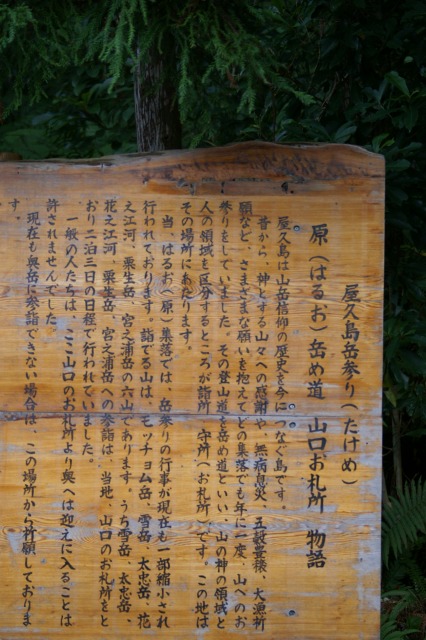 屋久島岳参り（たけめ）
原（はるお）岳め道　山口お札所　物語
屋久島は山岳信仰の歴史を今につなぐ島です。
昔から、神とする山々への感謝や、無病息災、五穀豊穣、大漁祈
願など、さまざまな願いを抱えてどの集落でも年に一度、山へのお
参りをしていました。その登山道を岳め道といい、山の神の領域と
人の領域を区分するところが詣所、守所（お札所）です。この地は
その場所にあたります。
当、はるお（原）集落では、岳参りの行事が現在も一部縮小され
行われております。詣でる山は、モッチョム岳、雪岳、太忠岳、花
之江河、栗生岳、宮之浦岳の六山であります。うち雪岳、太忠岳、
花之江河、栗生岳、宮之浦岳への参詣は、当地、山口のお札所をと
おり二泊三日の日程で行われていました。
一般の人たちは、ここ山口のお札所より奥へは迎えに入ることは
許されませんでした。
現在も奥岳に参詣できない場合は、この場所から祈願しておりま
す。